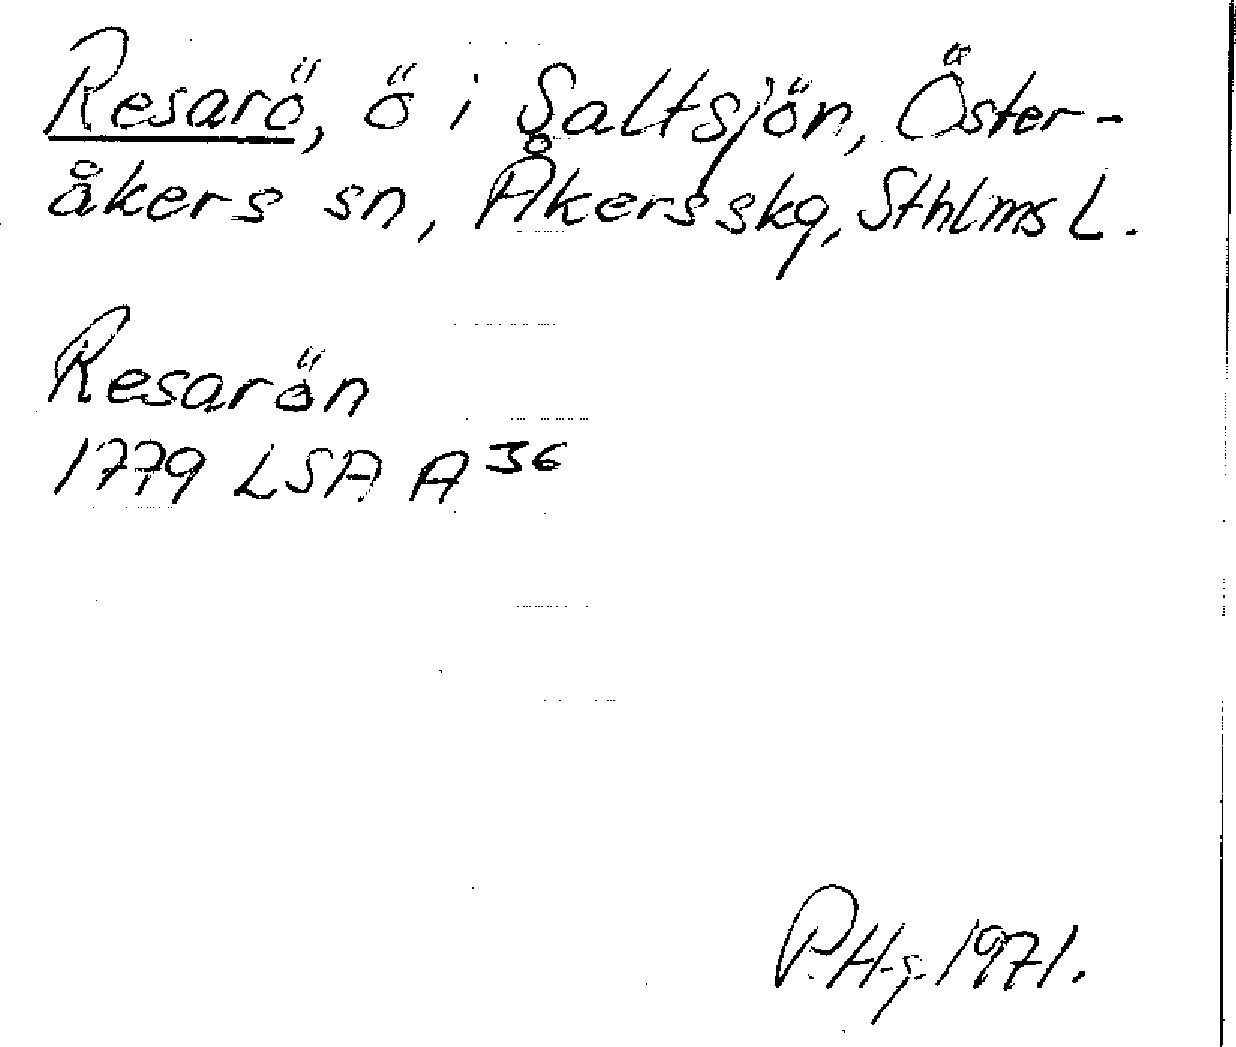 Resarö, ö i Saltsjön, Öster-
åkers sn, Åkers skg, Sthlms L.
Resarön
1779 LSA A 36
P.H-g. 1971.